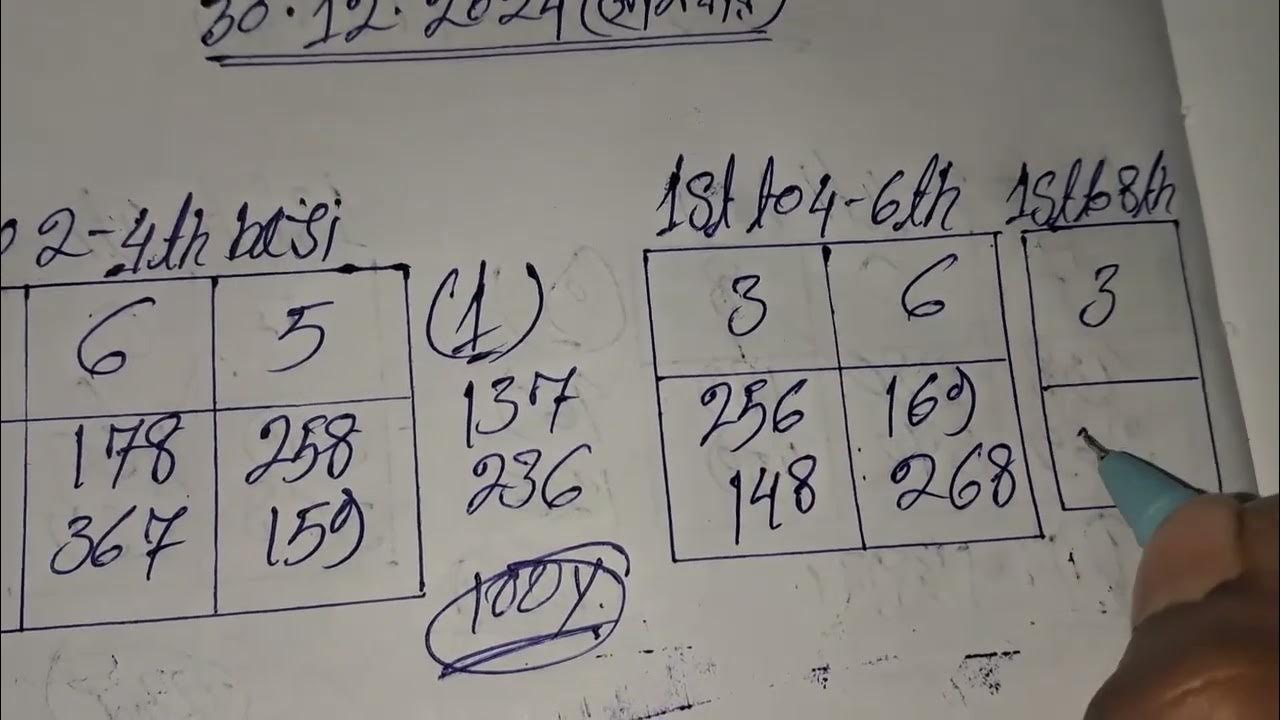 30.12.2024
2-4th basi
1St to 4-6th 1St to 8th
6 5 (1) 3 6 3
178 258 137 256 169
367 159 236 148 268
100%